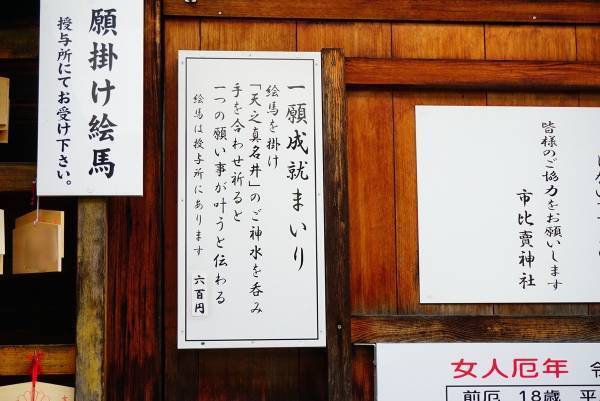 願掛け絵馬
授与所にてお受け下さい。
一願成就まいり
絵馬を掛け
「天之真名井」のご神水を呑み
手を合わせ祈ると
一つの願い事が叶うと伝わる
絵馬は授与所にあります
六百円
皆様のご協力をお願いします
市比賣神社
女人厄年 令
前厄 18歳 平